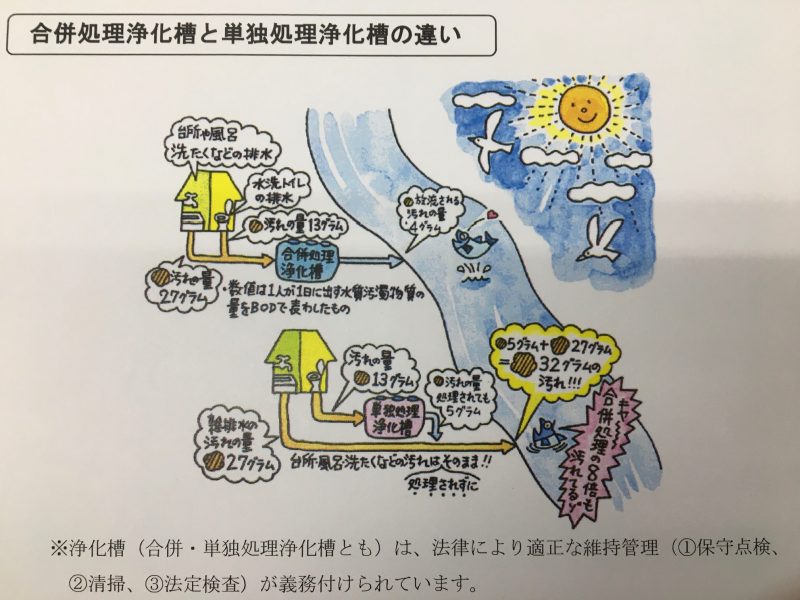 合併処理浄化槽と単独処理浄化槽の違い
台所や風呂
洗たくなどの排水
水洗トイレ
の排水
汚れの量13グラム
合併処理
浄化槽
放流される
汚れの量
4グラム
汚れの量
27グラム
・数値は1人が1日に出す水質汚濁物質の
量をBODで表わしたもの
汚れの量
13グラム
単独処理
浄化槽
汚れの量
処理されても
5グラム
5グラム+27グラム
=32グラムの
汚れ!!!
雑排水の
汚れの量
27グラム
台所・風呂・洗たくなどの汚れは、そのまま!!
処理されずに
キャー
合併処理の8倍も
汚れてるゾ
※浄化槽(合併・単独処理浄化槽とも)は、法律により適正な維持管理(①保守点検、
②清掃、③法定検査)が義務付けられています。